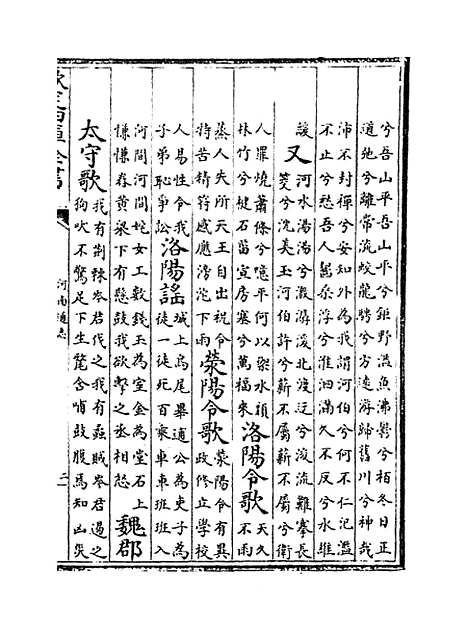 兮吾山平吾山平兮鉅野溢魚沸鬱兮柏冬日正
道弛兮離常流蛟龍騁兮方遠游歸舊川兮神哉
沛不封禪兮安知外為我謂河伯兮何不仁泛濫
不止兮愁吾人齧桑浮兮淮泗滿久不反兮水維
緩
又
河水湯湯兮激潺湲北渡迂兮浚流難搴長
茭兮沈美玉河伯許兮薪不屬薪不屬兮衛
人罪燒蕭條兮噫乎何以禦水頹
林竹兮楗石菑宣房塞兮萬福來
洛陽令歌
天久
不雨
蒸人失所天王自出祝令
特苦精符感應滂沱下雨
滎陽令歌
滎陽令有異
政修立學校
人易性令我
子弟恥爭訟
洛陽謠
城上烏尾畢逋公為吏子為
徒一徒死百乘車車班班入
河間河間姹女工數錢玉為室金為堂石上
慊慊舂黃粱下有懸鼓我欲擊之丞相怒
魏郡
太守歌
我有荆棘岑君伐之我有蟊賊岑君遏之
狗吠不驚足下生氂含哺鼓腹焉知凶災
欽定四庫全書
河南通志
二